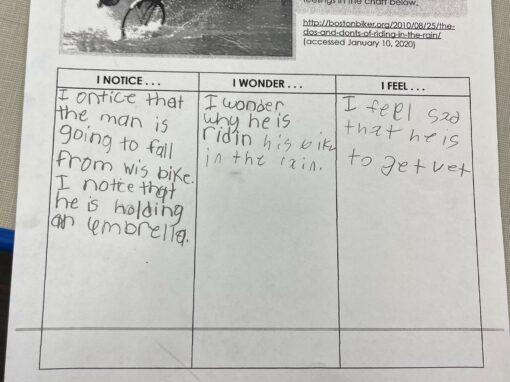 feelings in the chart below.
http://bostonbiker.org/2010/08/25/the-
dos-and-donts-of-riding-in-the-rain/
(accessed January 10, 2020)
I NOTICE . . .
I ontice that
the man is
going to fall
from wis bike.
I notce that
he is holding
an umbrella.
I WONDER . . .
I wonder
why he is
ridin his bike
in the rain.
I FEEL . . .
I feel sad
that he is
to get vet